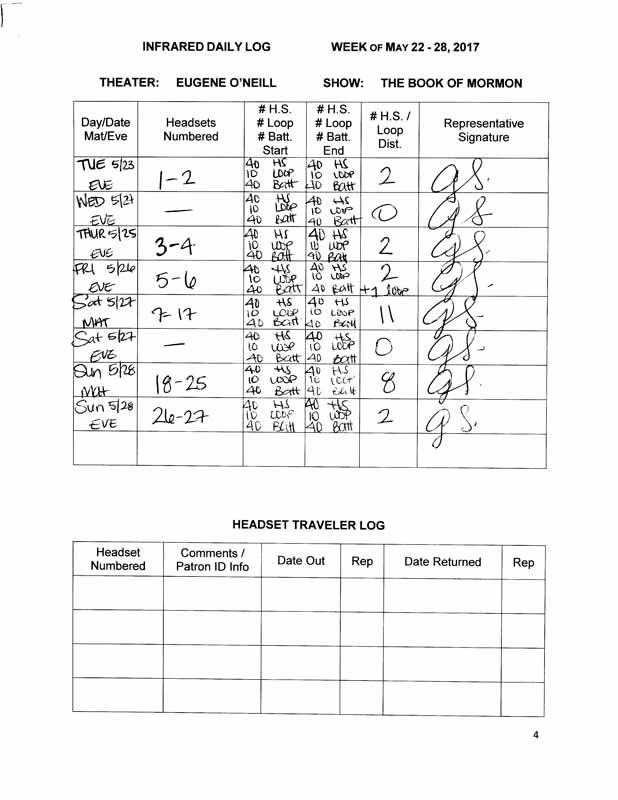 INFRARED DAILY LOG WEEK OF MAY 22 - 28, 2017
THEATER: EUGENE O'NEILL SHOW: THE BOOK OF MORMON
Day/Date Mat/Eve Headsets Numbered # H.S. # Loop # Batt. Start # H.S. # Loop # Batt. End # H.S. / Loop Dist. Representative Signature
TUE 5/23 EVE 1-2 40 HS 10 LOOP 40 Batt 40 HS 10 LOOP 40 Batt 2 GS.
WED 5/24 EVE — 40 HS 10 LOOP 40 Batt 40 HS 10 LOOP 40 Batt 0 GS
THUR 5/25 EVE 3-4 40 HS 10 LOOP 40 Batt 40 HS 10 LOOP 40 Batt 2 GS.
FRI 5/26 EVE 5-6 40 HS 10 LOOP 40 Batt 40 HS 10 LOOP 40 Batt 2 +1 loop GS.
Sat 5/27 MAT 7-17 40 HS 10 LOOP 40 Batt 40 HS 10 LOOP 40 Batt 11 GS.
Sat 5/27 EVE — 40 HS 10 LOOP 40 Batt 40 HS 10 LOOP 40 Batt 0 GS.
Sun 5/28 Mat 18-25 40 HS 10 LOOP 40 Batt 40 HS 10 LOOP 40 Batt 8 GS.
Sun 5/28 EVE 26-27 40 HS 10 LOOP 40 Batt 40 HS 10 LOOP 40 Batt 2 GS.
HEADSET TRAVELER LOG
Headset Numbered Comments / Patron ID Info Date Out Rep Date Returned Rep
4